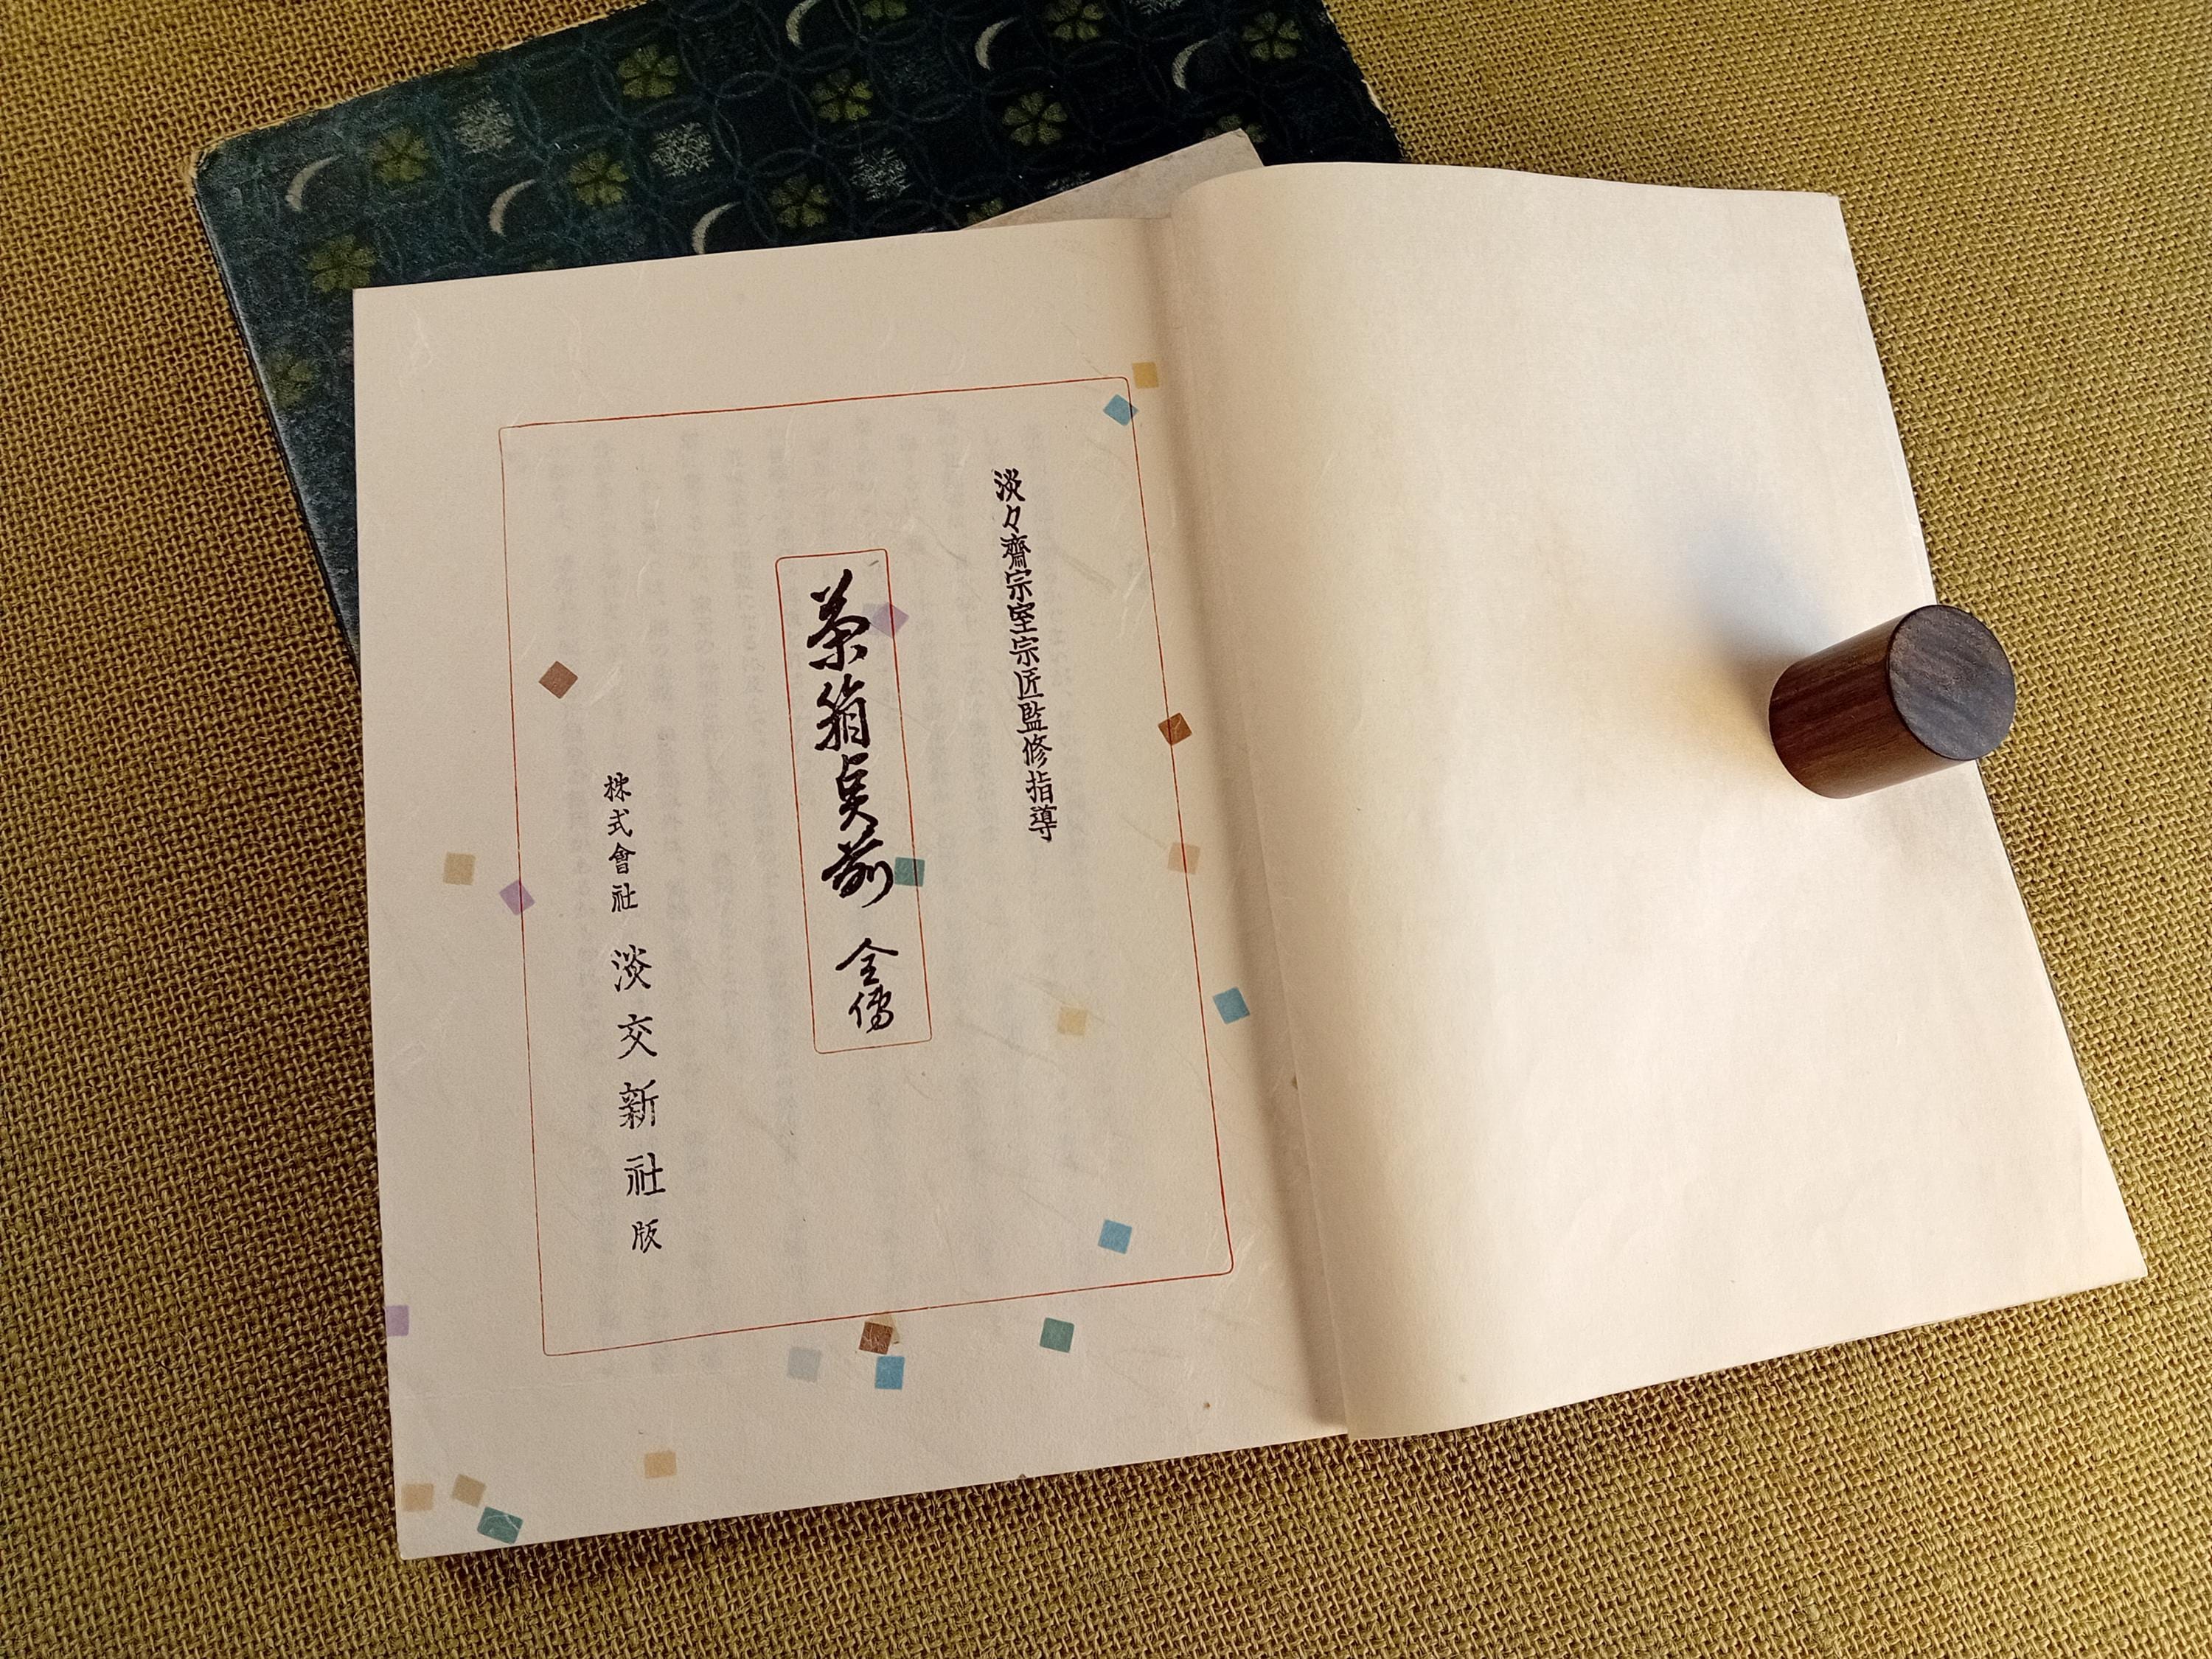 淡々齋宗室宗匠監修指導
茶箱点前 全傳
株式會社 淡交新社版